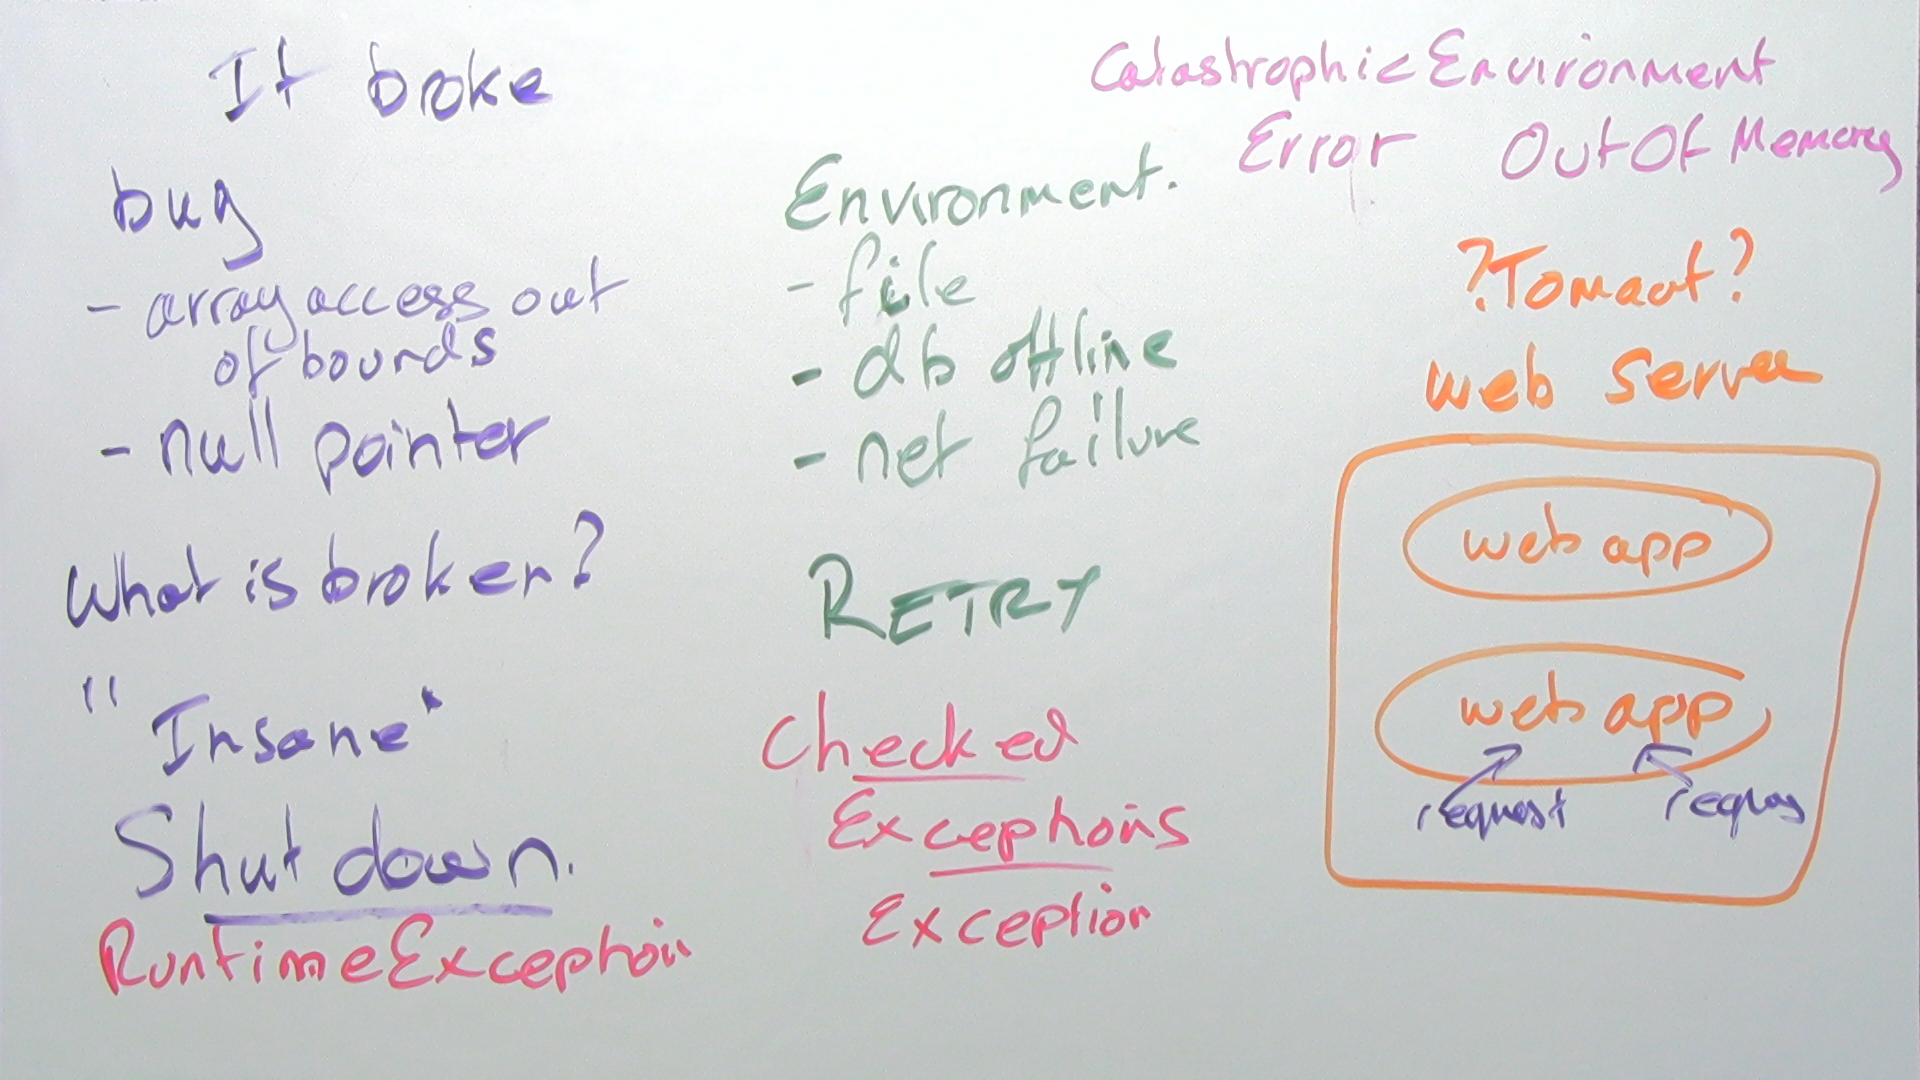 It broke
bug
- array access out
of bounds
- null pointer
What is broken?
"Insane"
Shut down.
RuntimeException
Environment.
- file
- db offline
- net failure
RETRY
Checked
Exceptions
Exception
Catastrophic Environment
Error OutOfMemory
?Tomcat?
web server
web app
web app
request